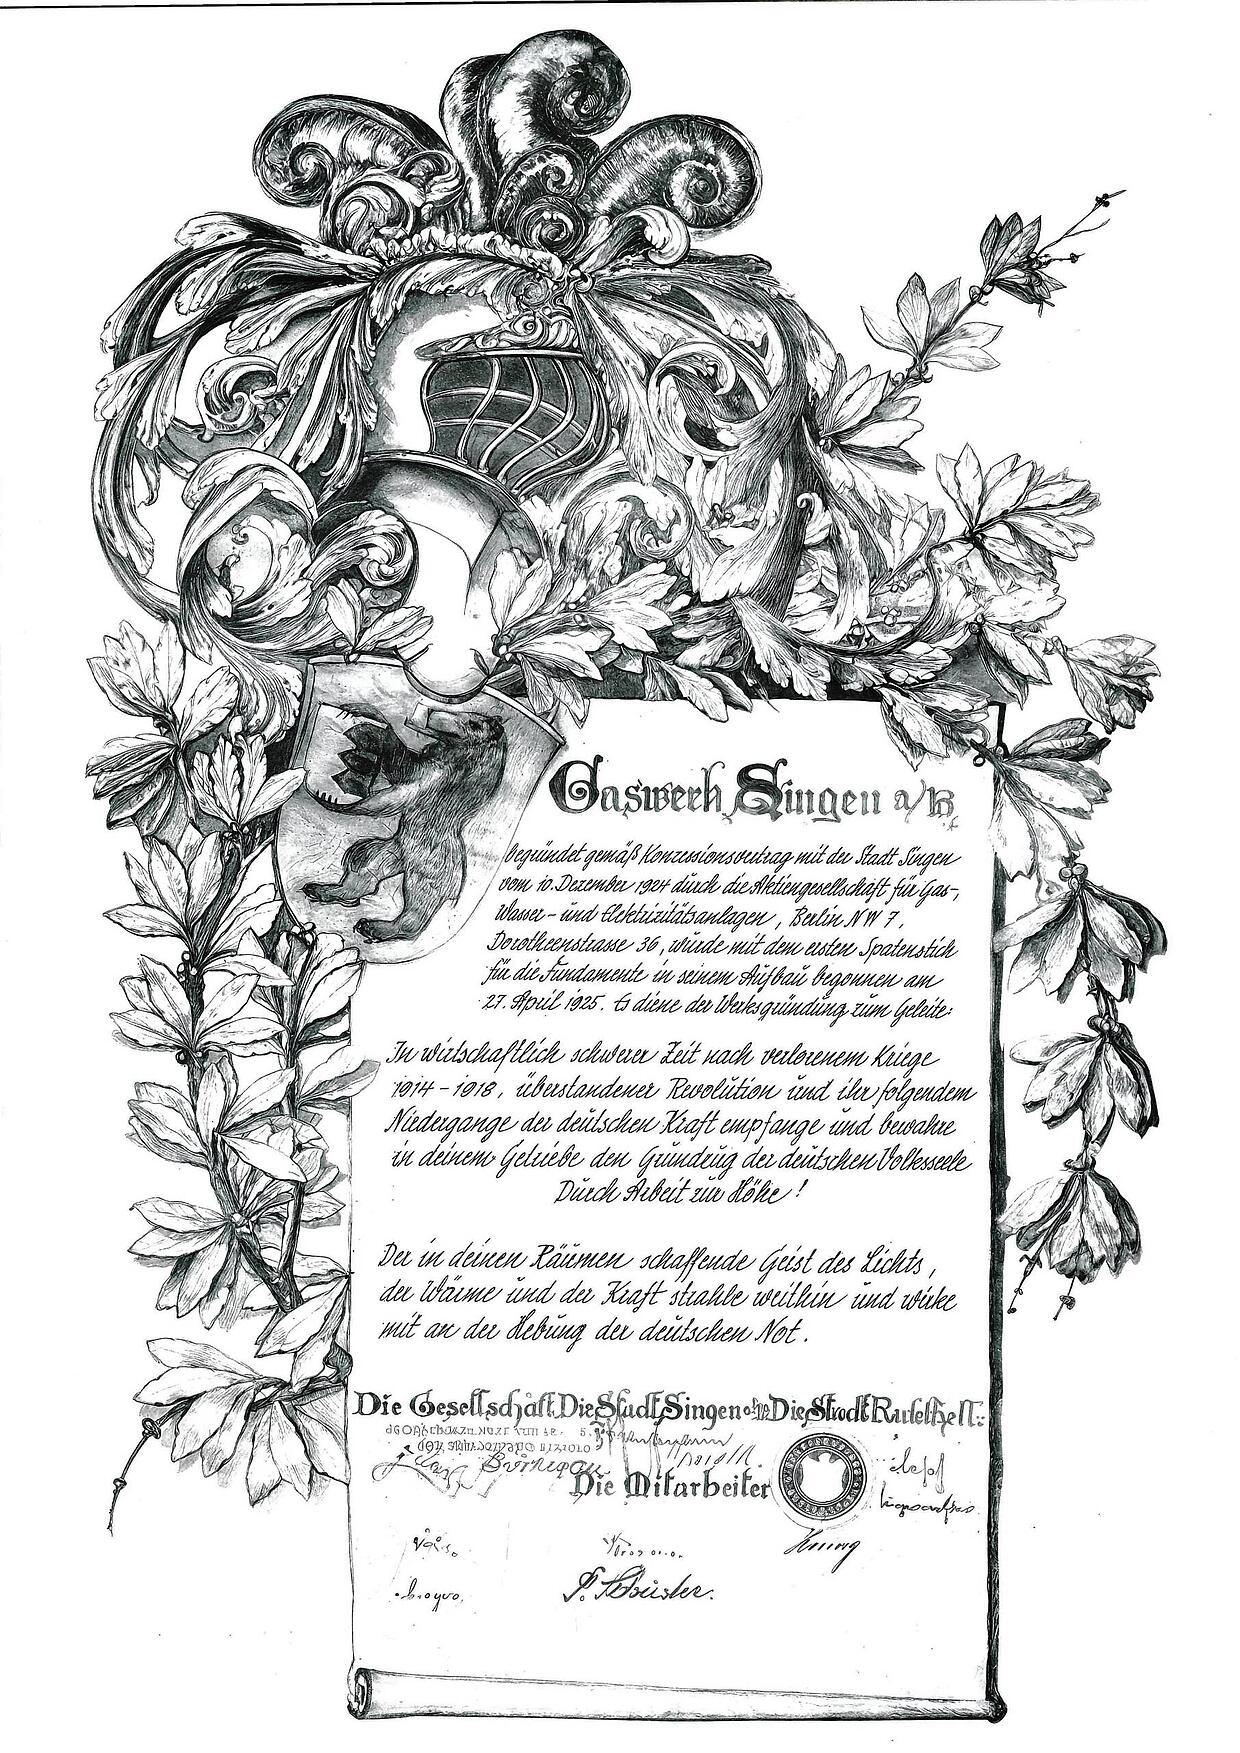 Gaswerk Singen a/H.
begründet gemäß Konzessionsvertrag mit der Stadt Singen
vom 10. Dezember 1924 durch die Aktiengesellschaft für Gas-,
Wasser- und Elektrizitätsanlagen, Berlin NW 7,
Dorotheenstrasse 36, wurde mit dem ersten Spatenstich
für die Fundamente in seinem Aufbau begonnen am
27. April 1925. Es diene der Werksgründung zum Geleite:
In wirtschaftlich schwerer Zeit nach verlorenem Kriege
1914 - 1918, überstandener Revolution und ihr folgendem
Niedergange der deutschen Kraft empfange und bewahre
in deinem Getriebe den Grundzug der deutschen Volksseele
Durch Arbeit zur Höhe!
Der in deinen Räumen schaffende Geist des Lichts,
der Wärme und der Kraft strahle weithin und wirke
mit an der Hebung der deutschen Not.
Die Gesellschaft Die Stadt Singen Die Stadt
Die Mitarbeiter